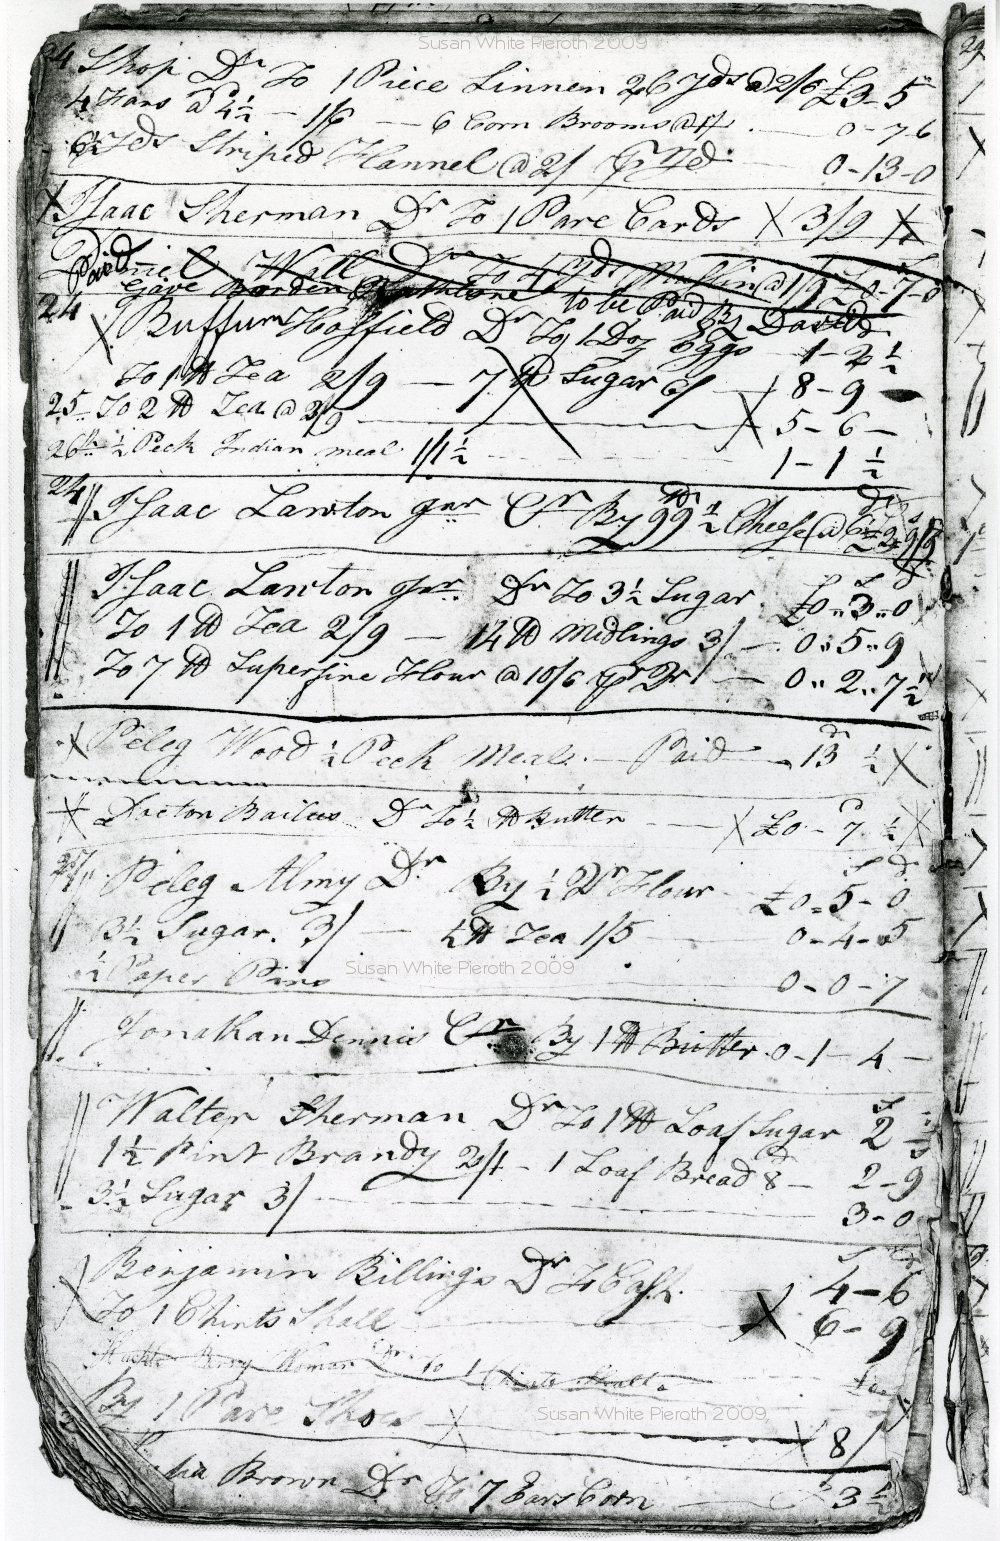 Susan White Pieroth 2009
24 Shop Dr To 1 Piece Linnen 26 Yds @ 2/6 £3-5
4 Fans @ 4½ — 1/6 — 6 Corn Brooms @ 1/ 0-7-6
6½ Yds Striped Flannel @ 2/ ⅌ Yd 0-13-0
X Isaac Sherman Dr To 1 Pare Cards X 3/9 X
Paid Wall Dr To 4 Yds Muslin @ 1/9 £0-7-0
Gave Borden to be Paid By David
24 X Buffum Hoffield Dr To 1 Doz Eggs 1-2½
To 1 ℔ Tea 2/9 — 7 ℔ Sugar 6/ 8-9
25 To 2 ℔ Tea @ 2/9 X 5-6
26th ½ Peck Indian meal 1/1½ 1-1½
24 Isaac Lawton Jnr Cr By 99½ Cheese @
Isaac Lawton Jnr. Dr To 3½ Sugar £0..3..0
To 1 ℔ Tea 2/9 — 14 ℔ Midlings 3/ 0..5..9
To 7 ℔ Superfine Flour @ 10/6 pr Qr 0..2..7½
X Peleg Wood ¼ Peck Meal Paid 13½ X
X Docton Bailees Dr To ½ ℔ Butter X £0-7½ X
27 Peleg Almy Dr By ¼ Qr Flour £0-5-0
3½ Sugar. 3/ — ½ ℔ Tea 1/5 0-4-5
½ Paper Pins 0-0-7
Susan White Pieroth 2009
Jonathan Dennis Cr By 1 ℔ Butter 0-1-4
Walter Sherman Dr To 1 ℔ Loaf Sugar 2
1½ Pint Brandy 2/1 - 1 Loaf Bread 8 2-9
3½ Sugar 3/ 3-0
Benjamin Billings Dr To Cash 4-6
To 1 Chints Shall X 6-9
Berry Woman Dr To 1 Chints Shall
By 1 Pare Shoes X X 8/
Susan White Pieroth 2009
Brown Dr To 7 Ears Corn 3½